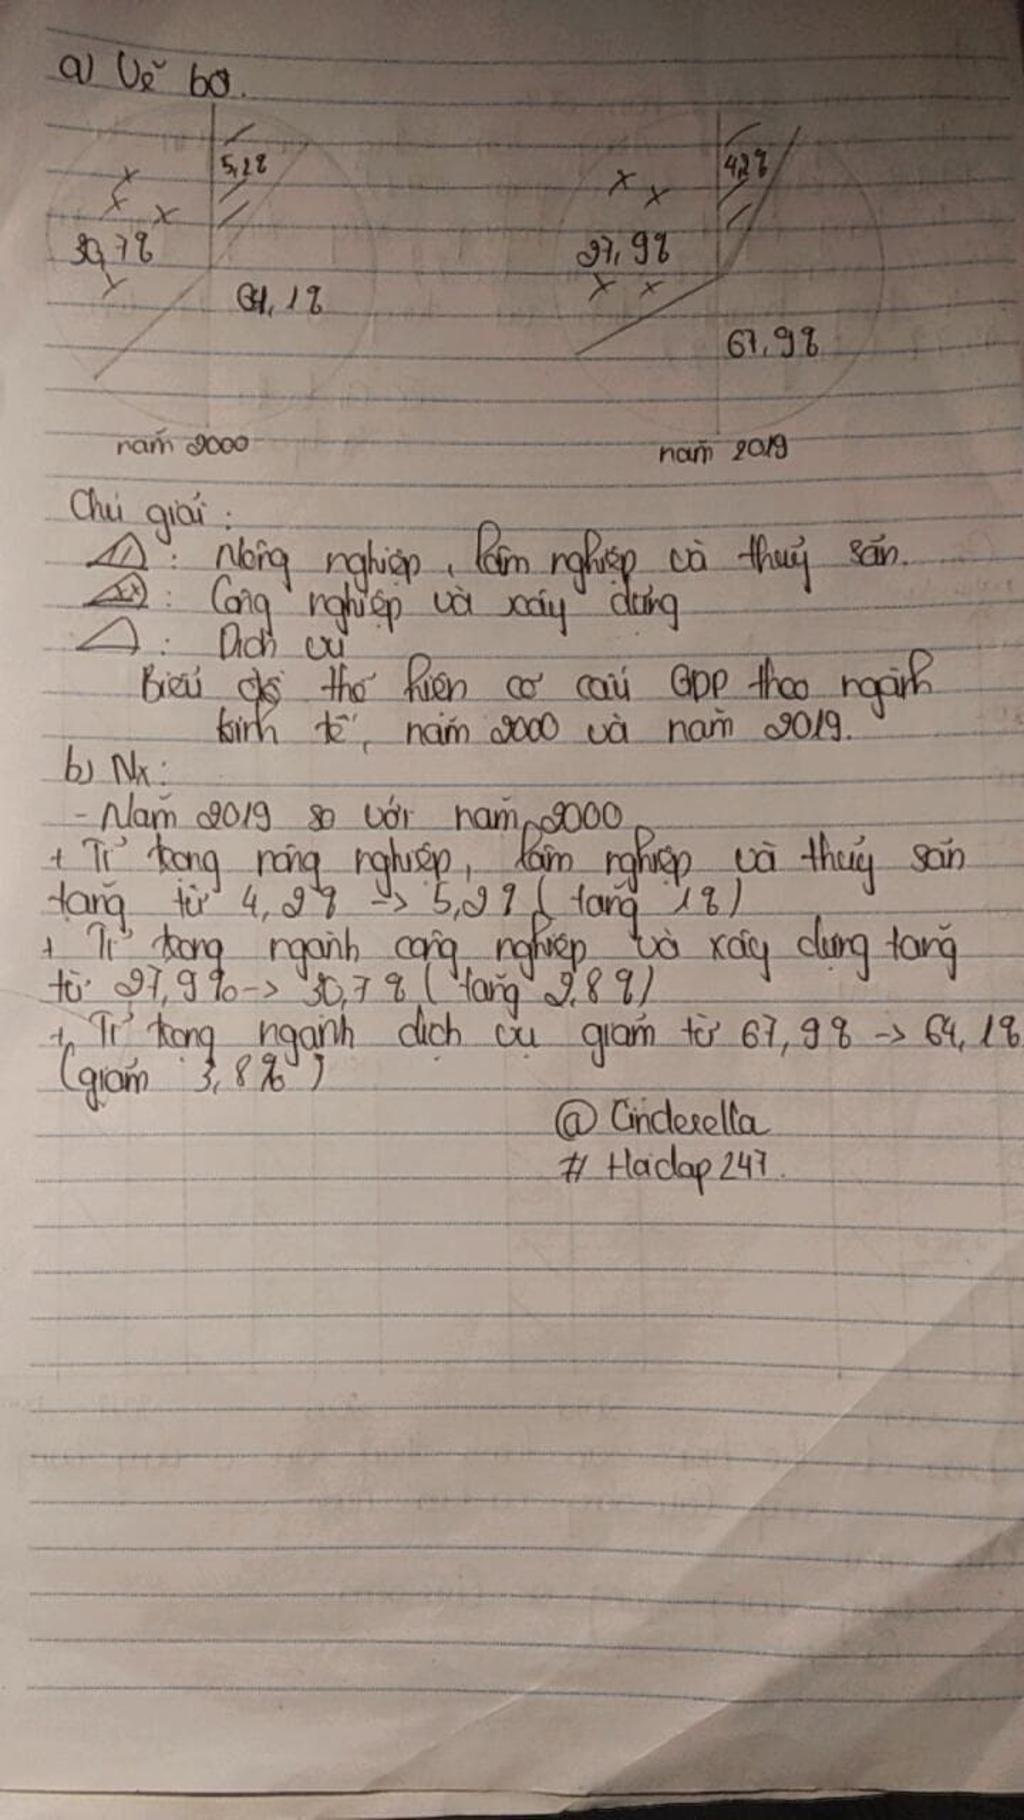 a) Vẽ bđ.
5,2%
4,2%
30,7%
27,9%
64,1%
67,9%
năm 2000
năm 2019
Chú giải:
: Nông nghiệp, lâm nghiệp và thuỷ sản.
: Công nghiệp và xây dựng
: Dịch vụ
Biểu đồ thể hiện cơ cấu GDP theo ngành
kinh tế, năm 2000 và năm 2019.
b) Nx:
- Năm 2019 so với năm 2000
+ Tỉ trọng nông nghiệp, lâm nghiệp và thuỷ sản
tăng từ 4,2% -> 5,2% (tăng 1%)
+ Tỉ trọng ngành công nghiệp và xây dựng tăng
từ 27,9% -> 30,7% (tăng 2,8%)
+ Tỉ trọng ngành dịch vụ giảm từ 67,9% -> 64,1%
(giảm 3,8%)
@ Cinderella
# Hoidap247.